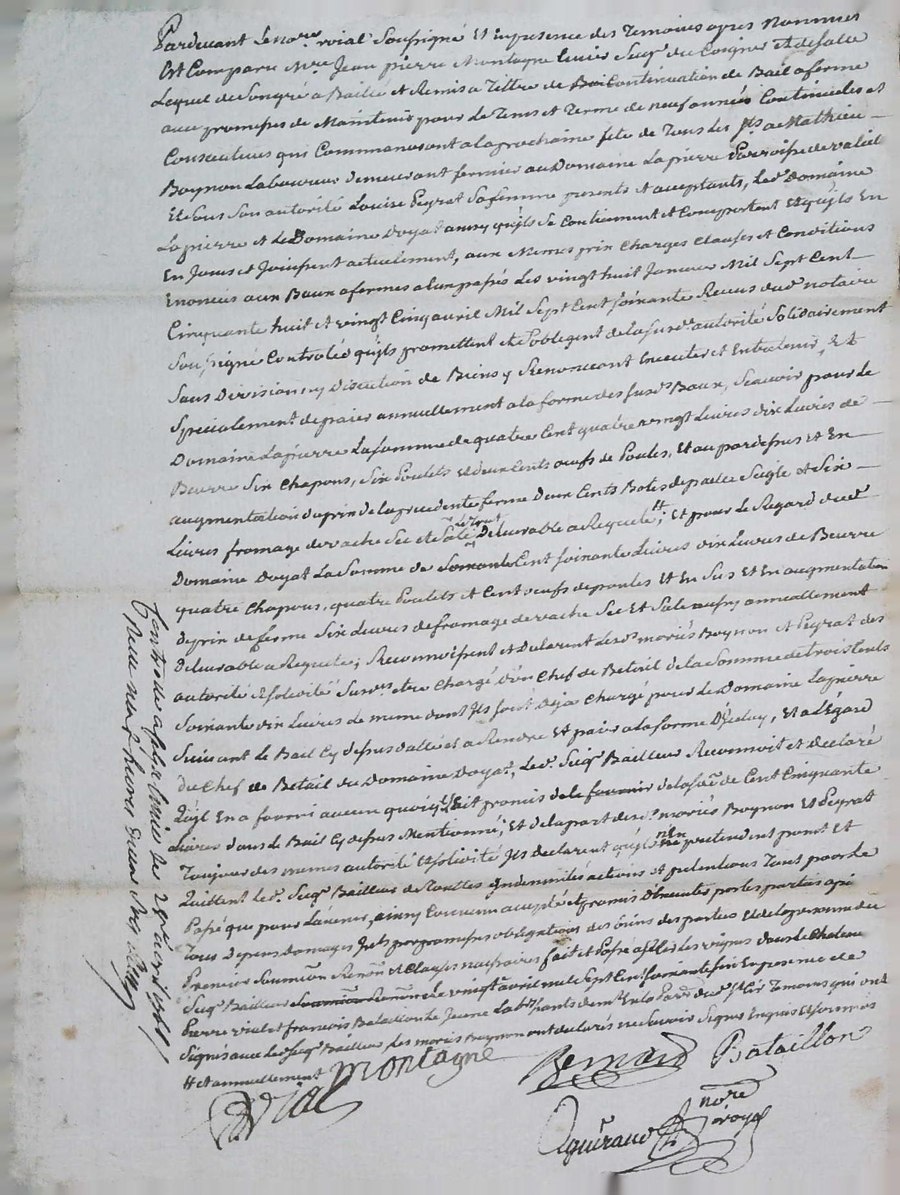 Pardevant Le no.re royal Soussigné Et en presence des Temoins apres Nommés
Est Comparu M.re Jean pierre Montagne Seig.r du et de
Lequel de Son gré a Baillé et Remis a Tittre de Bai Continuation de Bail a ferme
aux promesses de Maintenir pour le Tems et Terme de neuf années Continuelles et
Consecutives qui Commanceront a la prochaine fête de Tous les S.ts a Mathieu
Boynon Laboureur demeurant fermier au Domaine La pierre Parroisse de
Et sous Son autorité Louise Peyrat Sa femme presents et acceptants, Led. Domaine
La pierre et Le Domaine Doyat ainsy qu'ils Se Contiennent et Comportent Et qu'ils En
En Jouis et Jouissent actuellement, aux Memes prix Charges Clauses et Conditions
Enoncées aux Baux a fermes a Eux passés Les vingt huit Janvier Mil Sept Cent
Cinquante huit et vingt Cinq avril Mil Sept Cent soixante Recus dud. notaire
Soussigné Controllés qu'ils promettent et s'obligent de la susd. autorité Solidairement
Sans Division ny Discution de Biens y Renoncant Executer et Entretenir, Et
Specialement de païer annuellement a la forme des susd. Baux, Scavoir pour le
Domaine Lapierre La somme de quatre Cent quatre vingt Livres dix Livres de
Beurre Six Chapons, Six Poulets et deux Cents œufs de Poules, Et au pardessus et En
augmentation du prix de la precedente ferme deux Cents Botes de paille Seigle et Six
Livres fromage de vache Sec et Salé Le Tout Delivrable a Requete #; Et pour le Regard dud.
Domaine Doyat La Somme de Cent soixante Livres dix Livres de Beurre
quatre Chapons, quatre Poulets et Cent œufs de poules Et En Sus et En augmentation
de prix de ferme Six Livres de fromage de vache Sec Et Salé aussy annuellement
Delivrable a Requete; Reconnoissent et Declarent Lesd. mariés Boynon et Peyrat des
autorité et soliditė Susd. etre Chargé d'un Chef de Betail de la Somme de trois Cents
Soixante dix Livres de meme dont Ils sont Deja Chargé pour Le Domaine Lapierre
Suivant le Bail Cy dessus datté et a Rendre Et païer a la forme D'Iceluy, Et a L'Egard
du Chef de Betail du Domaine Doyat, Led. Seig.r Bailleur Reconnoit et Declare
qu'il En a fourni aucun quoiqu'il Eut promis de le fournir de la som.e de Cent Cinquante
Livres dans le Bail Cy dessus Mentionné; Et de la part desd. mariés Boynon Et Peyrat
Toujours des memes autorité et solidité Ils declarent qu'ils n'En pretendent point Et
Quittent Led. Seig.r Bailleur de Toutes Indemnités actions et pretentions Tant pour Le
Passé que pour L'avenir, ainsy Convenu accepté et promis
Tous Depens Domages Intts. par promesses obligations des biens des parties Et de la personne du
Premier Soumi.on Renon. et Clauses necessaires fait et passé a les vignes dans le Chateau
Seig.r Bailleur Le vingt avril mil Sept Cent Soixante six En presence de
Pierre et francois Bataillon le Jeune Lab.rs
Signés avec Led. Seig.r Bailleur Les mariés Boynon ont declarés ne Scavoir Signer Enquis et Sommés
# et annuellement Montagne
Bernard Bataillon
Vial
Aguiraud no.re royal
Controllé a le 28.e avril 1766
Recu neuf livres